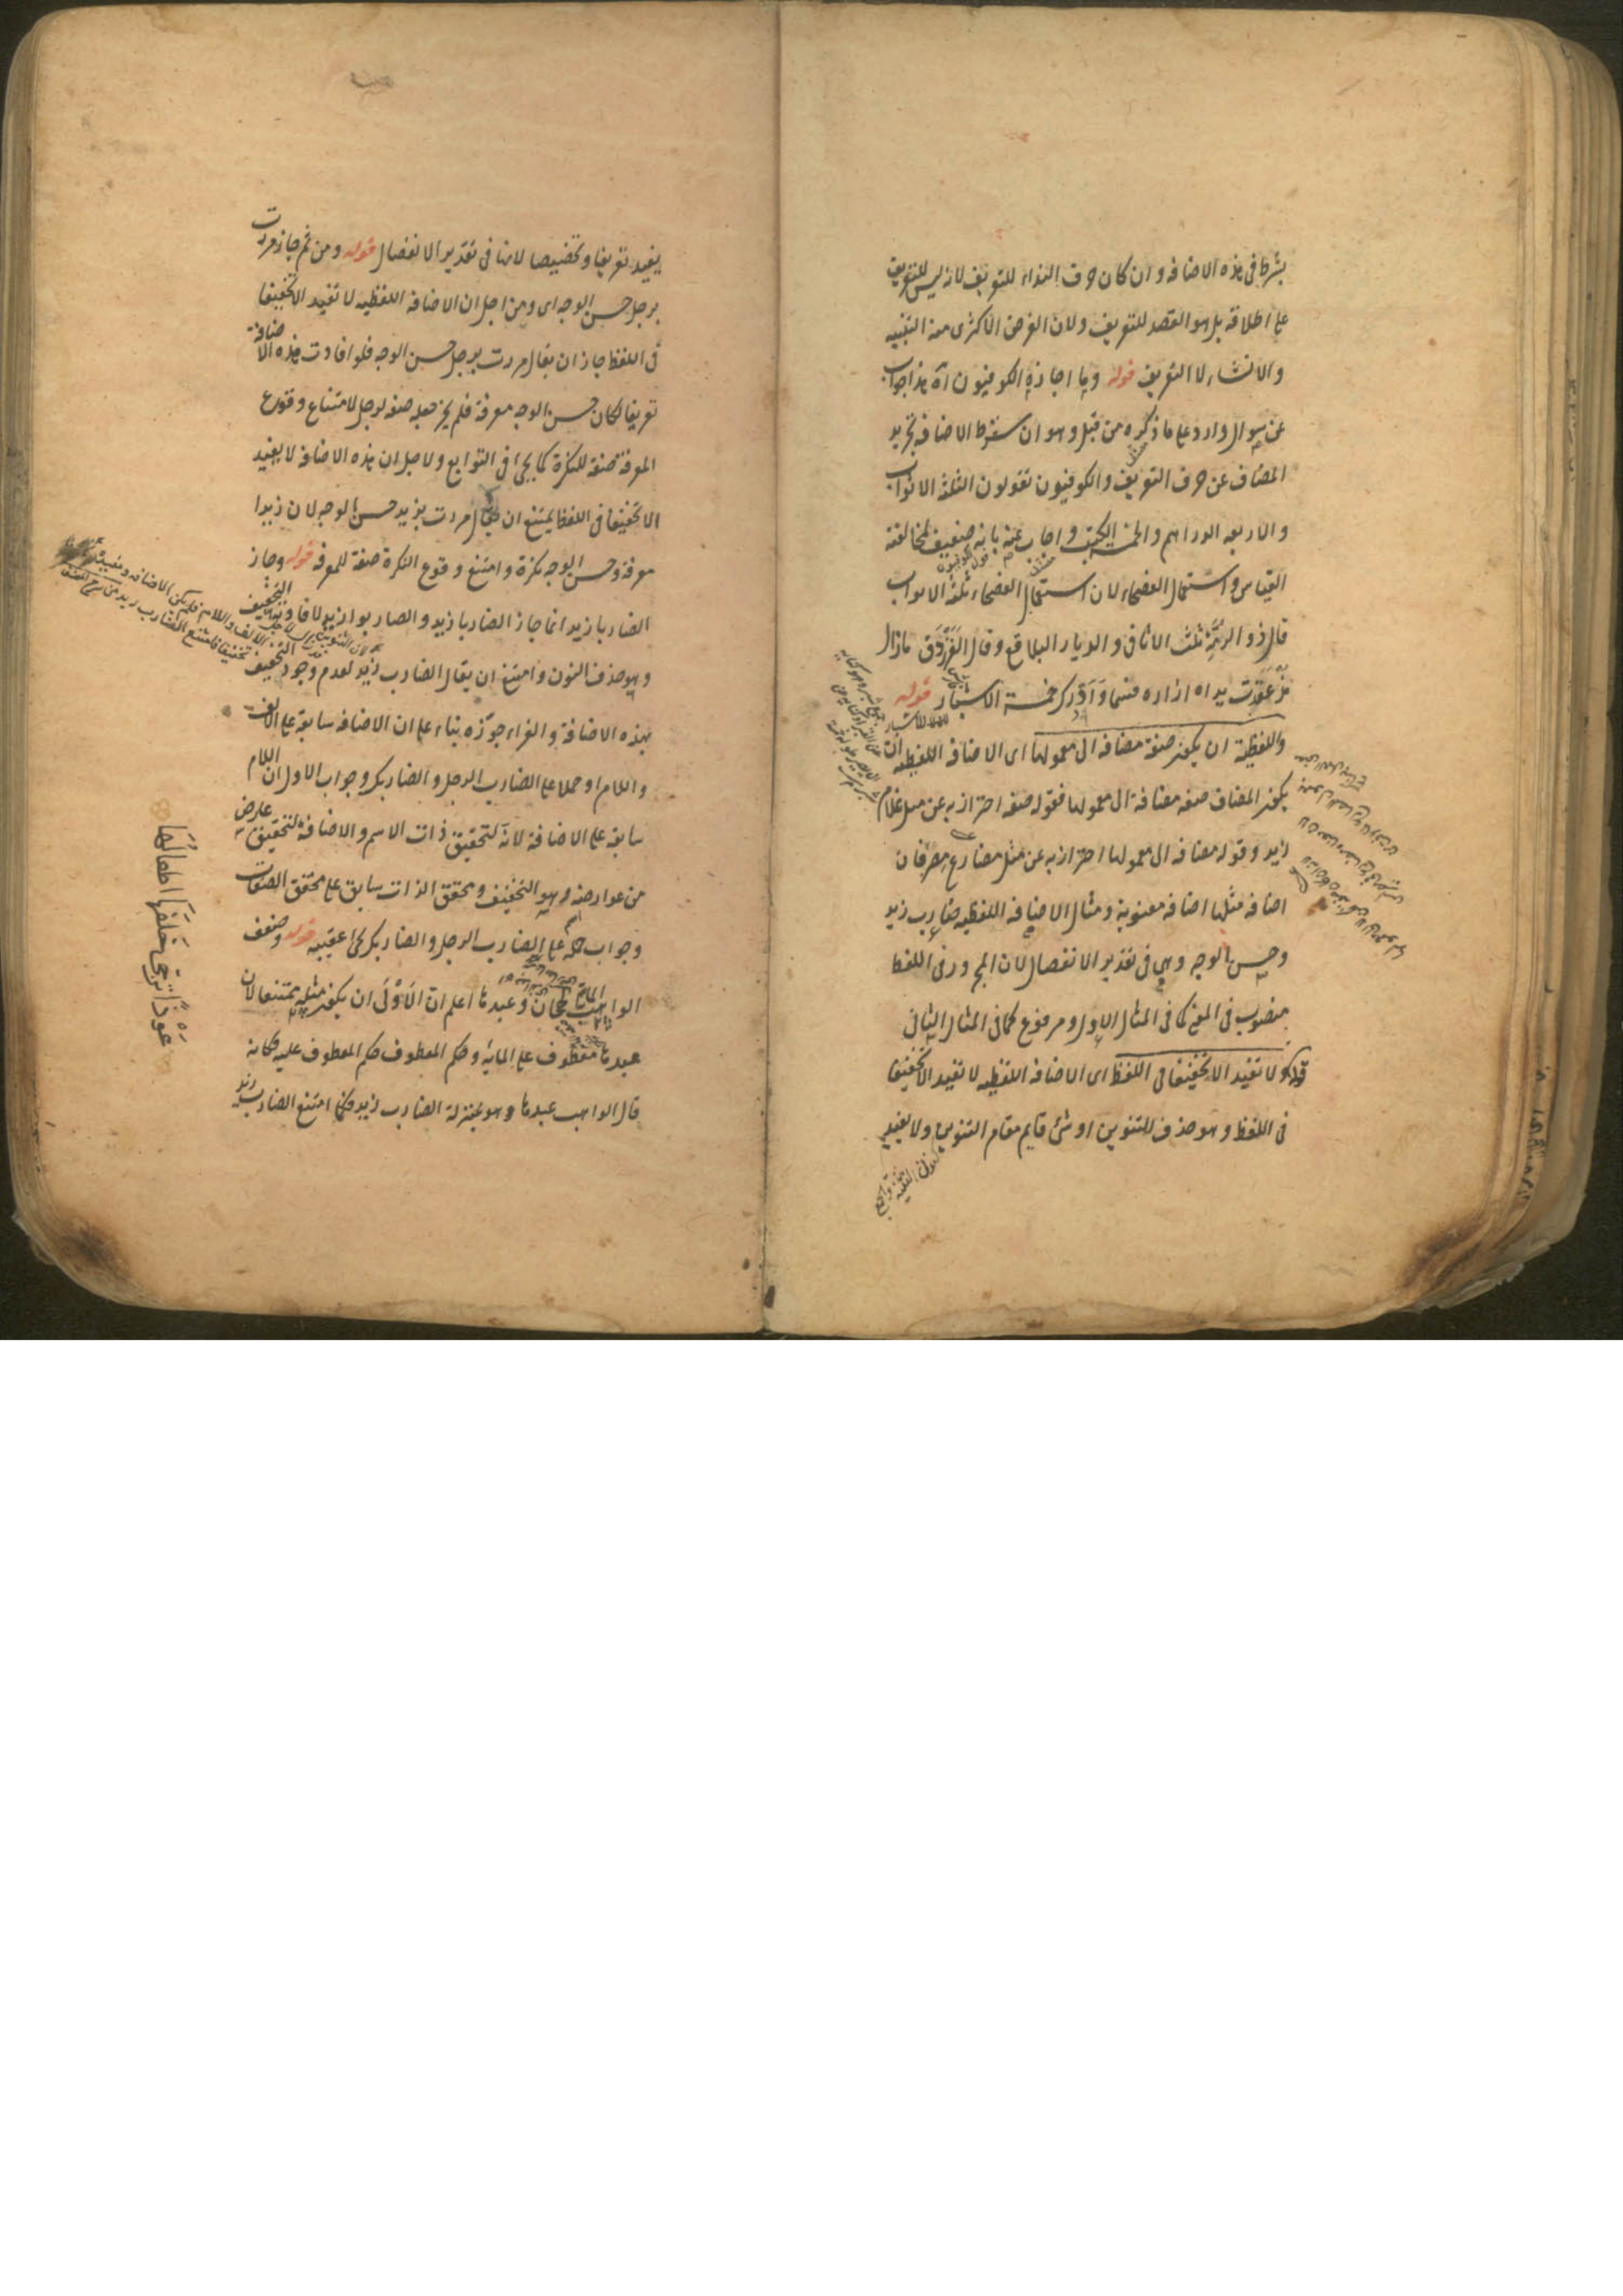 بشرط فى هذه الاضافه وان كان حرف النداء للتعريف لانه ليس للتعريف
على اطلاقه بل هو القصد للتعريف ولان الغرض الاكثرى منه التنبيه
والانشاء لا التعريف قوله وما اجازه الكوفيون آه هذا جواب
عن سوال وارد على ما ذكره من قبل وهو ان سقوط الاضافه تجريد
المضاف عن حرف التعريف والكوفيون تقولون الثلثة الاثواب
والاربعه الدراهم والخمسة الكتب واجاب عنه بانه ضعيف لمخالفته
القياس واستعمال الفصحاء لان استعمال الفصحاء ثلثة الاثواب
قال ذو الرمة ثلث الاثافى والديار البلاقع وقال الفرزدق مازال
مذ عقدت يداه ازاره فسما وادرك خمسة الاشبار قوله
واللفظية ان يكون صفة مضافه الى معمولها اى الاضافه اللفظيه ان
يكون المضاف صفه مضافة الى معمولها فقوله صفه احتراز به عن مثل غلام
زيد وقوله مضافه الى معمولها احتراز به عن مثل مضارع مصر فان
اضافه مثلها اضافه معنوية ومثال الاضافه اللفظيه ضارب زيد
وحسن الوجه وهى فى تقدير الانفصال لان المجرور فى اللفظ
منصوب فى المعنى كما فى المثال الاول ومرفوع كما فى المثال الثانى
قوله ولا تفيد الا تخفيفا فى اللفظ اى الاضافه اللفظيه لا تفيد الا تخفيفا
فى اللفظ وهو حذف التنوين او شئ قايم مقام التنوين ولا يفيد
كنون التثنيه والجمع
يفيد تعريفا وتخصيصا لانها فى تقدير الانفصال قوله ومن ثم جاز مررت
برجل حسن الوجه اى ومن اجل ان الاضافه اللفظيه لا تفيد الا تخفيفا
فى اللفظ جاز ان يقال مررت برجل حسن الوجه فلو افادت هذه الاضافة
تعريفا لكان حسن الوجه معرفة فلم يجز جعله صفه لرجل لامتناع وقوع
المعرفة صفة للنكرة كما يجئ فى التوابع ولاجل ان هذه الاضافه لا يفيد
الا تخفيفا فى اللفظ يمتنع ان يقال مررت بزيد حسن الوجه لان زيدا
معرفة وحسن الوجه نكرة وامتنع وقوع النكرة صفة للمعرفه قوله وجاز
الضاربا زيد انما جاز الضاربا زيد والضاربوا زيد لافادتها التخفيف
وهو حذف النون وامتنع ان يقال الضارب زيد لعدم وجود التخفيف
بهذه الاضافة والفراء جوزه بناء على ان الاضافه سابقة على الالف
واللام او حملا على الضارب الرجل والضاربك وجواب الاول ان اللام
سابقه على الاضافة لانه لتحقيق ذات الاسم والاضافة لتحقيق عارض
من عوارضه وهو التخفيف وتحقق الذات سابق على تحقق الصفات
وجواب حمله على الضارب الرجل والضاربك يجئ عقيبه قوله وضعف
الواهب المائة الهجان وعبدها اعلم ان الاولى ان يكون مثله ممتنعا لان
عبدها معطوف على المائة وحكم المعطوف حكم المعطوف عليه فكانه
قال الواهب عبدها وهو بمنزلة الضارب زيد فكما امتنع الضارب زيد
عوذا تزجى خلفها اطفالها